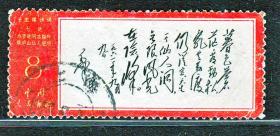 毛主席诗词
七绝
为李进同志题所摄
庐山仙人洞照
8分
中国
人民邮政
暮色苍
茫看劲松
乱云飞渡
仍从容天生
一个仙人洞
无限风光
在险峰
毛泽东